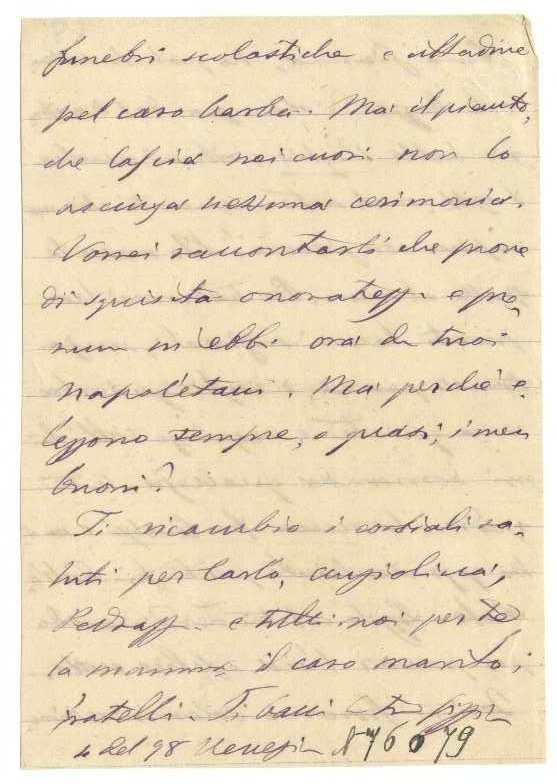 funebri scolastiche e cittadine
pel caro Barba. Ma il pianto,
che lascia nei cuori non lo
asciuga nessuna cerimonia.
Vorrei raccontarti che prove
di squisita onoratezz. e pre
mura m'ebbi ora da tuoi
napoletani. Ma perchè e,
leggono sempre, o quasi, i men
buoni?
Ti ricambio i cordiali sa,
luti per Carlo, Angiolina,
e tutti noi per te
la mamma il caro marito, i
fratelli. Ti baci
4 del 98 Venezia N 76 079